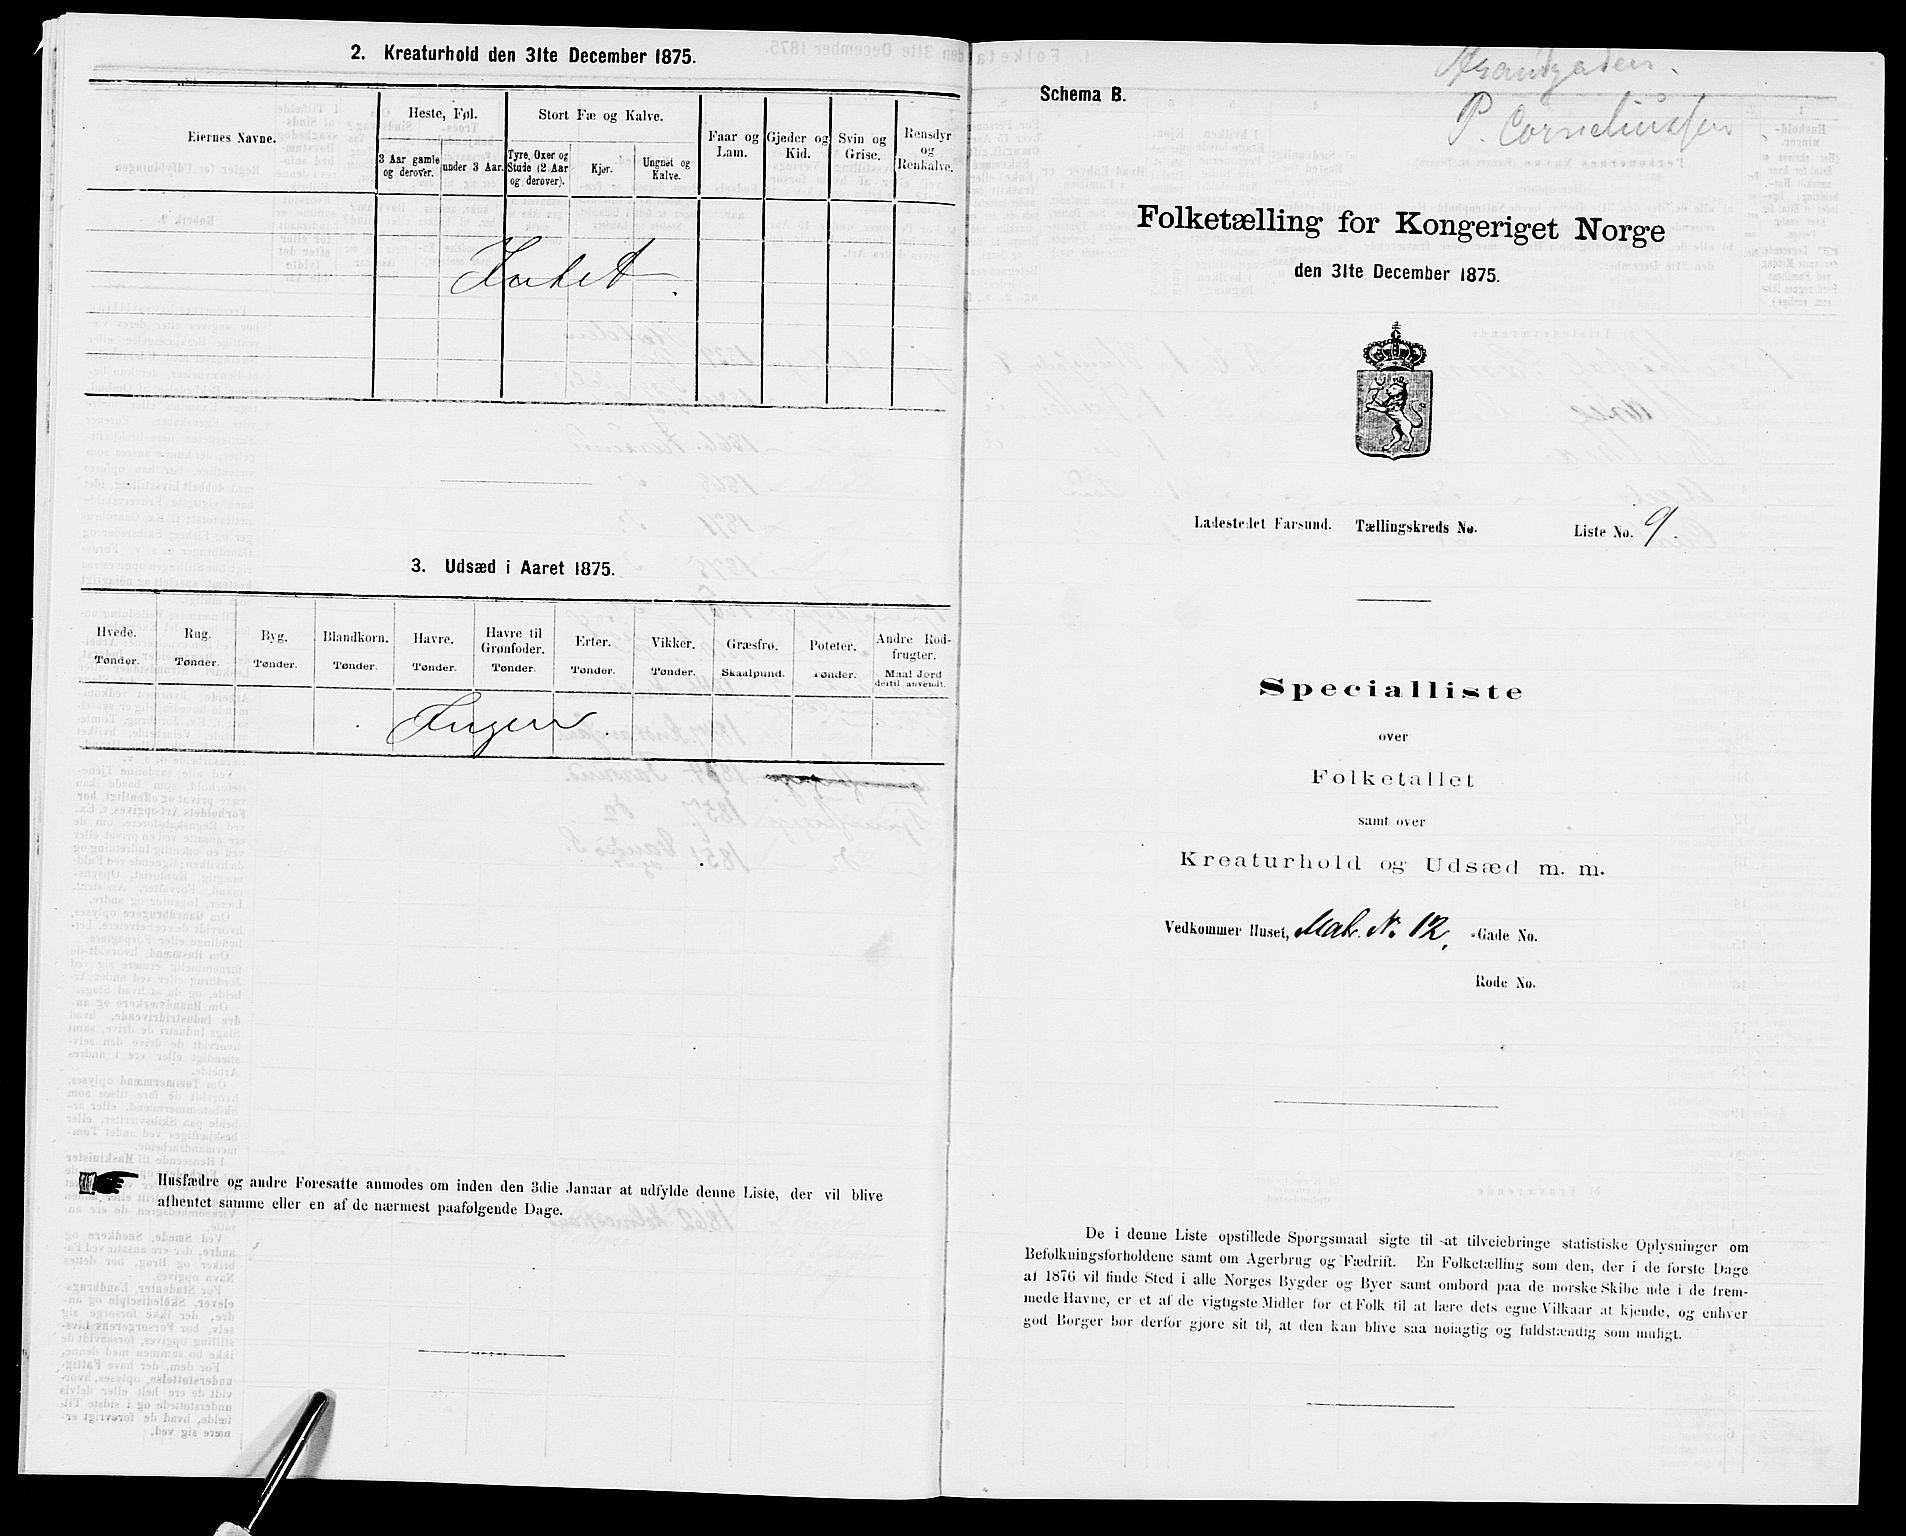 2. Kreaturhold den 31te December 1875.
Eiernes Navne.
Heste, Føl.
Stort Fæ og Kalve.
Faar og Lam.
Gjeder og Kid.
Svin og Grise.
Rensdyr og Renkalve.
3 Aar gamle og derover.
under 3 Aar.
Tyre, Oxer og Stude (2 Aar og derover).
Kjør.
Ungnet og Kalve.
Intet
3. Udsæd i Aaret 1875.
Hvede. Rug. Byg. Blandkorn. Havre. Havre til Grønfoder. Erter. Vikker. Græsfrø. Poteter. Andre Rodfrugter.
Tønder. Tønder. Tønder. Tønder. Tønder. Tønder. Tønder. Tønder. Skaalpund. Tønder. Maal Jord dertil anvendt.
Ingen.
Husfædre og andre Foresatte anmodes om inden den 3die Januar at udfylde denne Liste, der vil blive
afhentet samme eller en af de nærmest paafølgende Dage.
Strandgaden.
Schema B.
P. Corneliussen
Folketælling for Kongeriget Norge
den 31te December 1875.
Ladestedet Farsund. Tællingskreds No. Liste No. 9.
Specialliste
over
Folketallet
samt over
Kreaturhold og Udsæd m. m.
Vedkommer Huset, Mat. No. 12, -Gade No.
Rode No.
De i denne Liste opstillede Spørgsmaal sigte til at tilveiebringe statistiske Oplysninger om
Befolkningsforholdene samt om Agerbrug og Fædrift. En Folketælling som den, der i de første Dage
af 1876 vil finde Sted i alle Norges Bygder og Byer samt ombord paa de norske Skibe ude i de frem-
mede Havne, er et af de vigtigste Midler for et Folk til at lære dets egne Vilkaar at kjende, og enhver
god Borger bør derfor gjøre sit til, at den kan blive saa nøiagtig og fuldstændig som muligt.